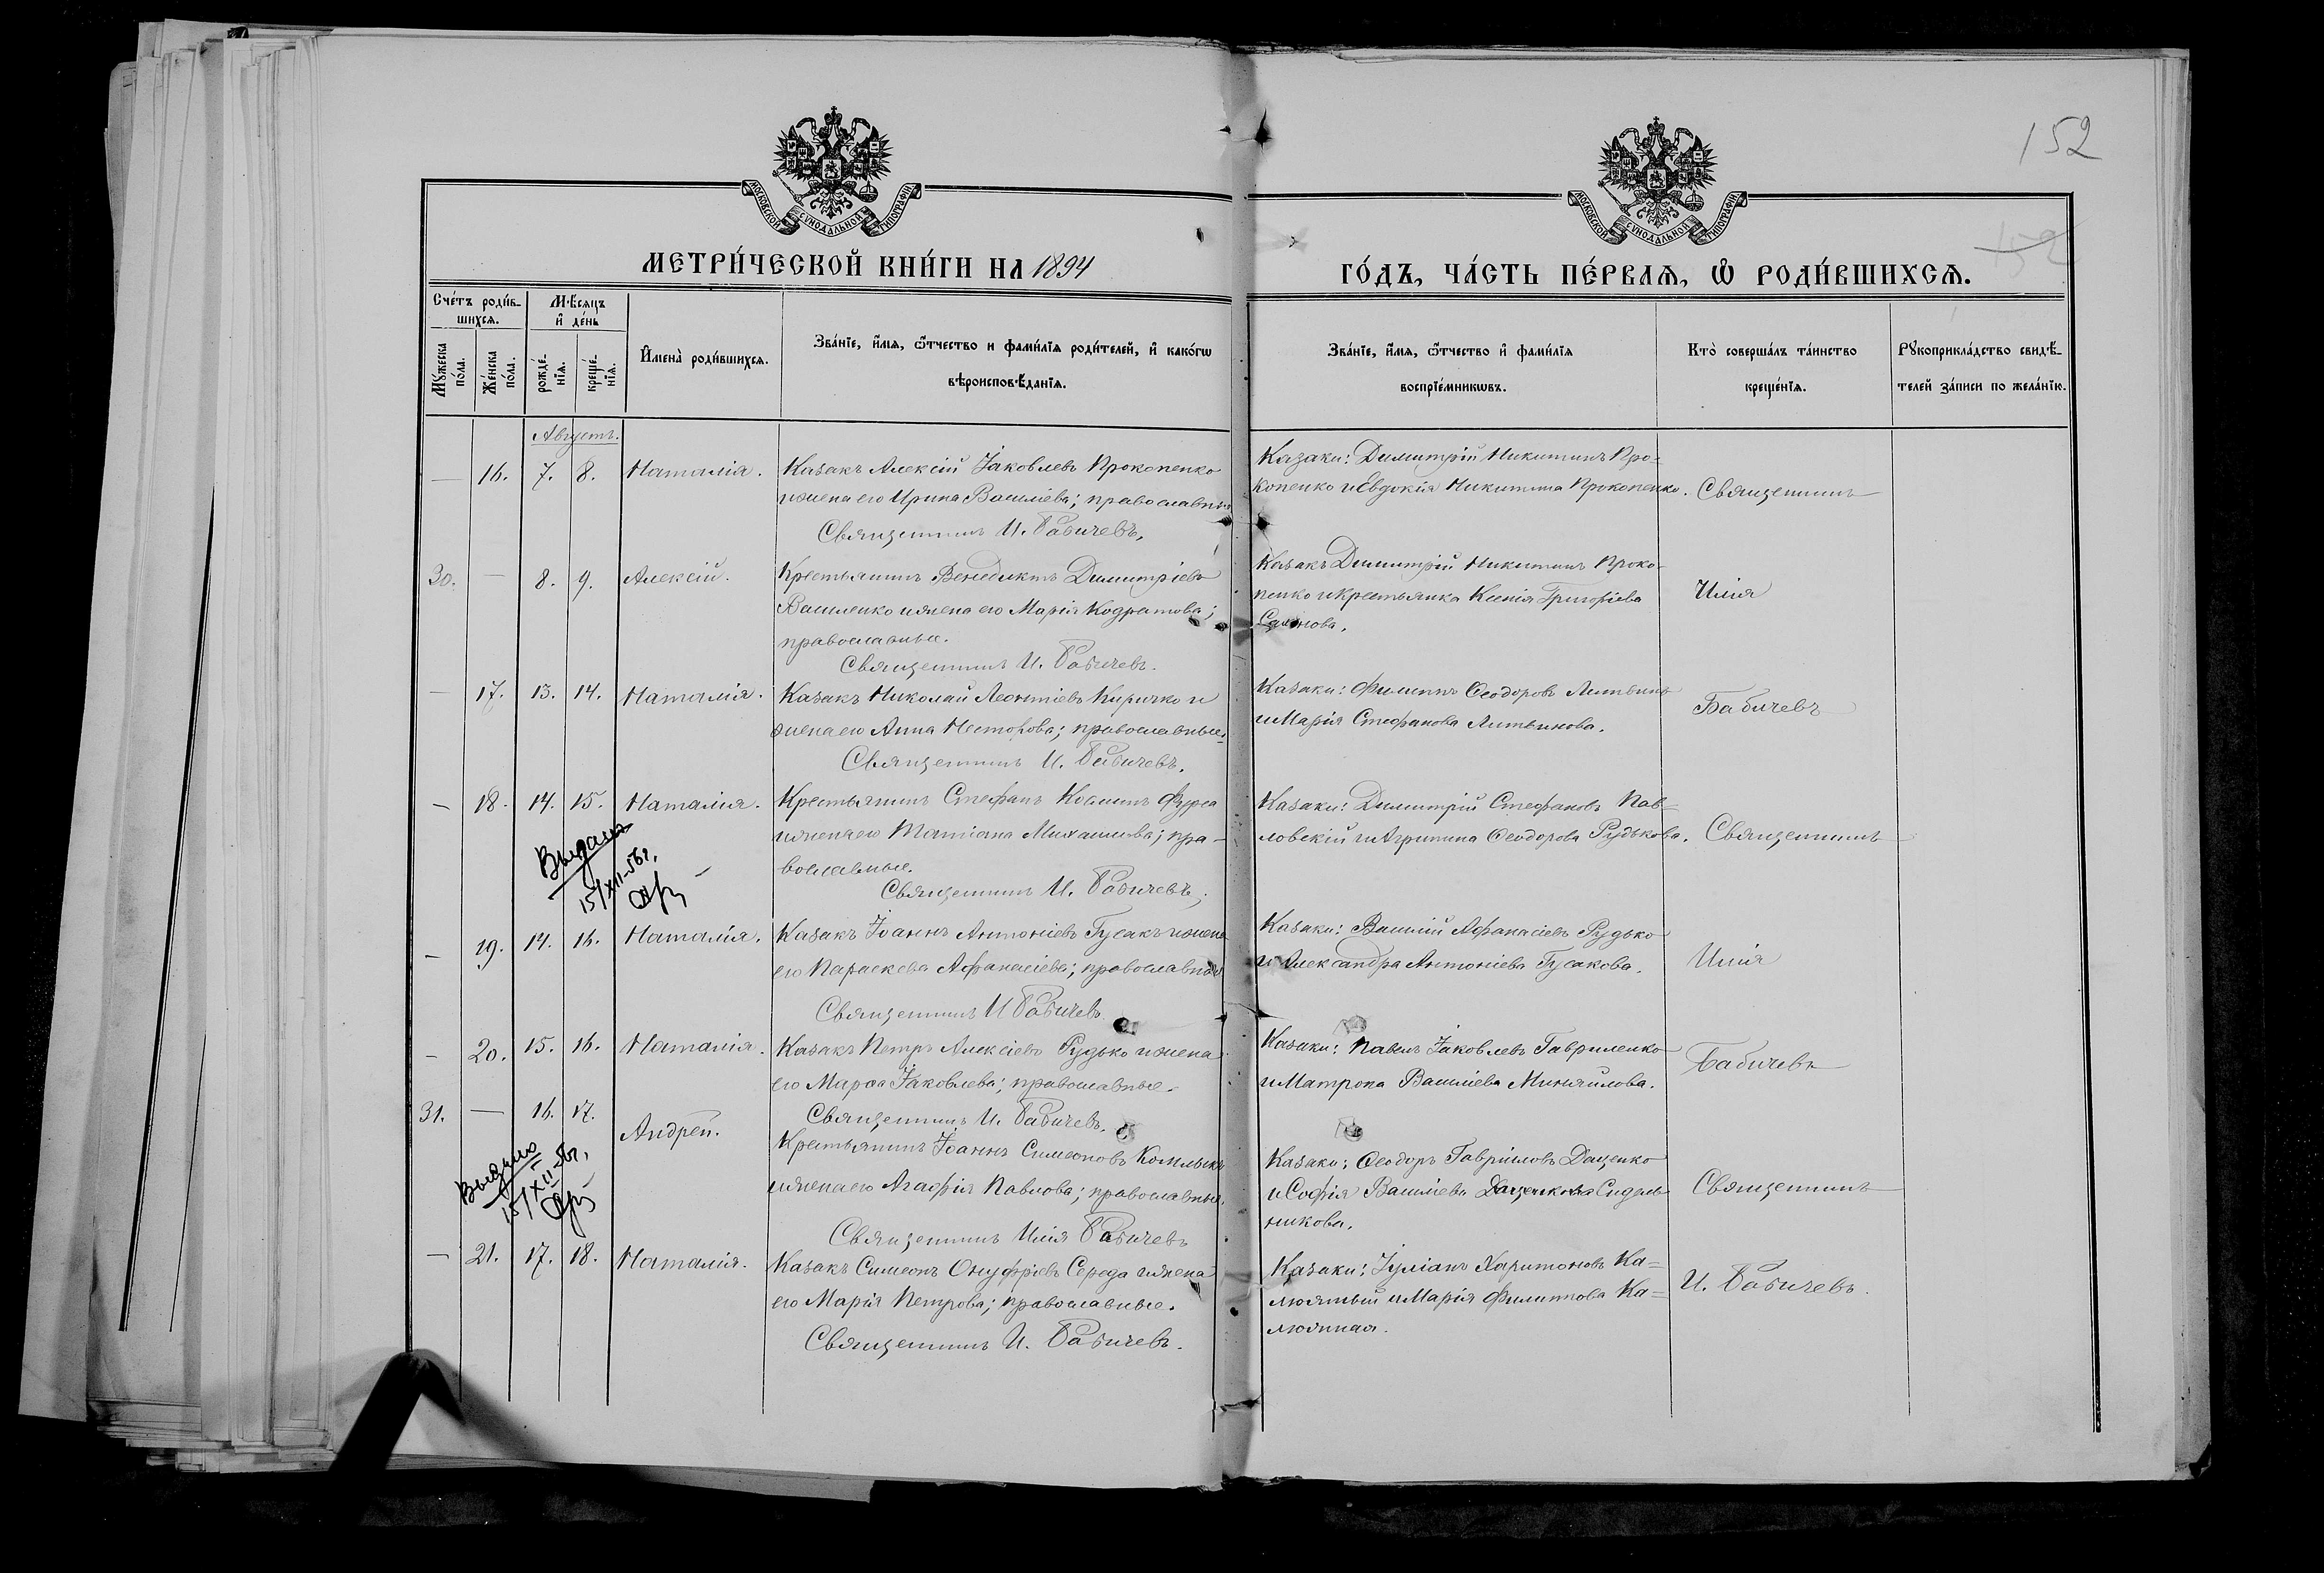 152
МОСКОВСКОЙ СѴНОДАЛЬНОЙ ТИПОГРАФІИ
МОСКОВСКОЙ СѴНОДАЛЬНОЙ ТИПОГРАФІИ
152
МЕТРИ́ЧЕСКОЙ КНИ́ГИ НА 1894
ГО́ДЪ, ЧА́СТЬ ПЕ́РВАѦ, Ѿ РОДИ́ВШИХСѦ.
Сче́тъ роди́в-
шихсѧ.
Мѣ́сѧцъ
и҆ де́нь
Мꙋ́жеска по́ла.
Же́нска по́ла.
рожде́-нїѧ.
креще́-нїѧ.
И҆мена̀ роди́вшихсѧ.
Зва́нїе, и҆́мѧ, ѻ҆́тчество и фами́лїѧ роди́телей, и҆ како́гѡ
вѣроисповѣ́данїѧ.
Зва́нїе, и҆́мѧ, ѻ҆́тчество и҆ фами́лїѧ
воспрїе́мникѡвъ.
Кто̀ соверша́лъ та́инство
креще́нїѧ.
Рꙋкоприкла́дство свидѣ́-
телей за́писи по жела́нїю.
Августъ.
— 16. 7. 8. Наталія. Казакъ Алексій Іаковлевъ Прокопенко
и жена его Ирина Василіева; православные
Священникъ И. Бабичевъ.
Казаки: Димитрій Никитинъ Про=
копенко и Евдокія Никитина Прокопенко. Священникъ
30. — 8. 9. Алексій. Крестьянинъ Венедиктъ Димитріевъ
Василенко и жена его Марія Кодратова;
православные.
Священникъ И. Бабичевъ.
Казакъ Димитрій Никитинъ Проко-
пенко и крестьянка Ксенія Григоріева
Илія
— 17. 13. 14. Наталія. Казакъ Николай Леонтіевъ Киричко и
жена его Анна Несторова; православные.
Священникъ И. Бабичевъ.
Казаки: Филиппъ Ѳеодоровъ Литвинъ
и Марія Стефанова Литвинова.
Бабичевъ
— 18. 14. 15. Наталія. Крестьянинъ Стефанъ Косминъ Фурса
и жена его Татіана Михаилова; пра-
вославные.
Священникъ И. Бабичевъ.
Выдана
15/XII-56г.
Казаки: Димитрій Стефановъ Пав=
ловскій и Агрипина Ѳеодорова Рудькова. Священникъ
— 19. 14. 16. Наталія. Казакъ Іоаннъ Антоніевъ Гусакъ и жена
его Параскева Афанасіева; православные
Священникъ И Бабичевъ
Казаки: Василій Афанасіевъ Рудько
и Александра Антоніева Гусакова.
Илія
— 20. 15. 16. Наталія. Казакъ Петръ Алексіевъ Рудько и жена
его Марѳа Іаковлева; православные.
Священникъ И. Бабичевъ.
Казаки: Павелъ Іаковлевъ Гавриленко
и Матрона Василіева Миняйлова.
Бабичевъ
31. — 16. 17. Андрей. Крестьянинъ Іоаннъ Симеоновъ
и жена его Агафія Павлова; православные.
Священникъ Илія Бабичевъ
Выдано
15/XII-56г.
Казаки: Ѳеодоръ Гавріиловъ Даценко
и Софія Василіева Сидель-
никова.
Священникъ
— 21. 17. 18. Наталія. Казакъ Симеонъ Онуфріевъ Середа и жена
его Марія Петрова; православные.
Священникъ И. Бабичевъ.
Казаки: Іуліанъ Харитоновъ Ка=
и Марія Филиппова Ка=
И. Бабичевъ.